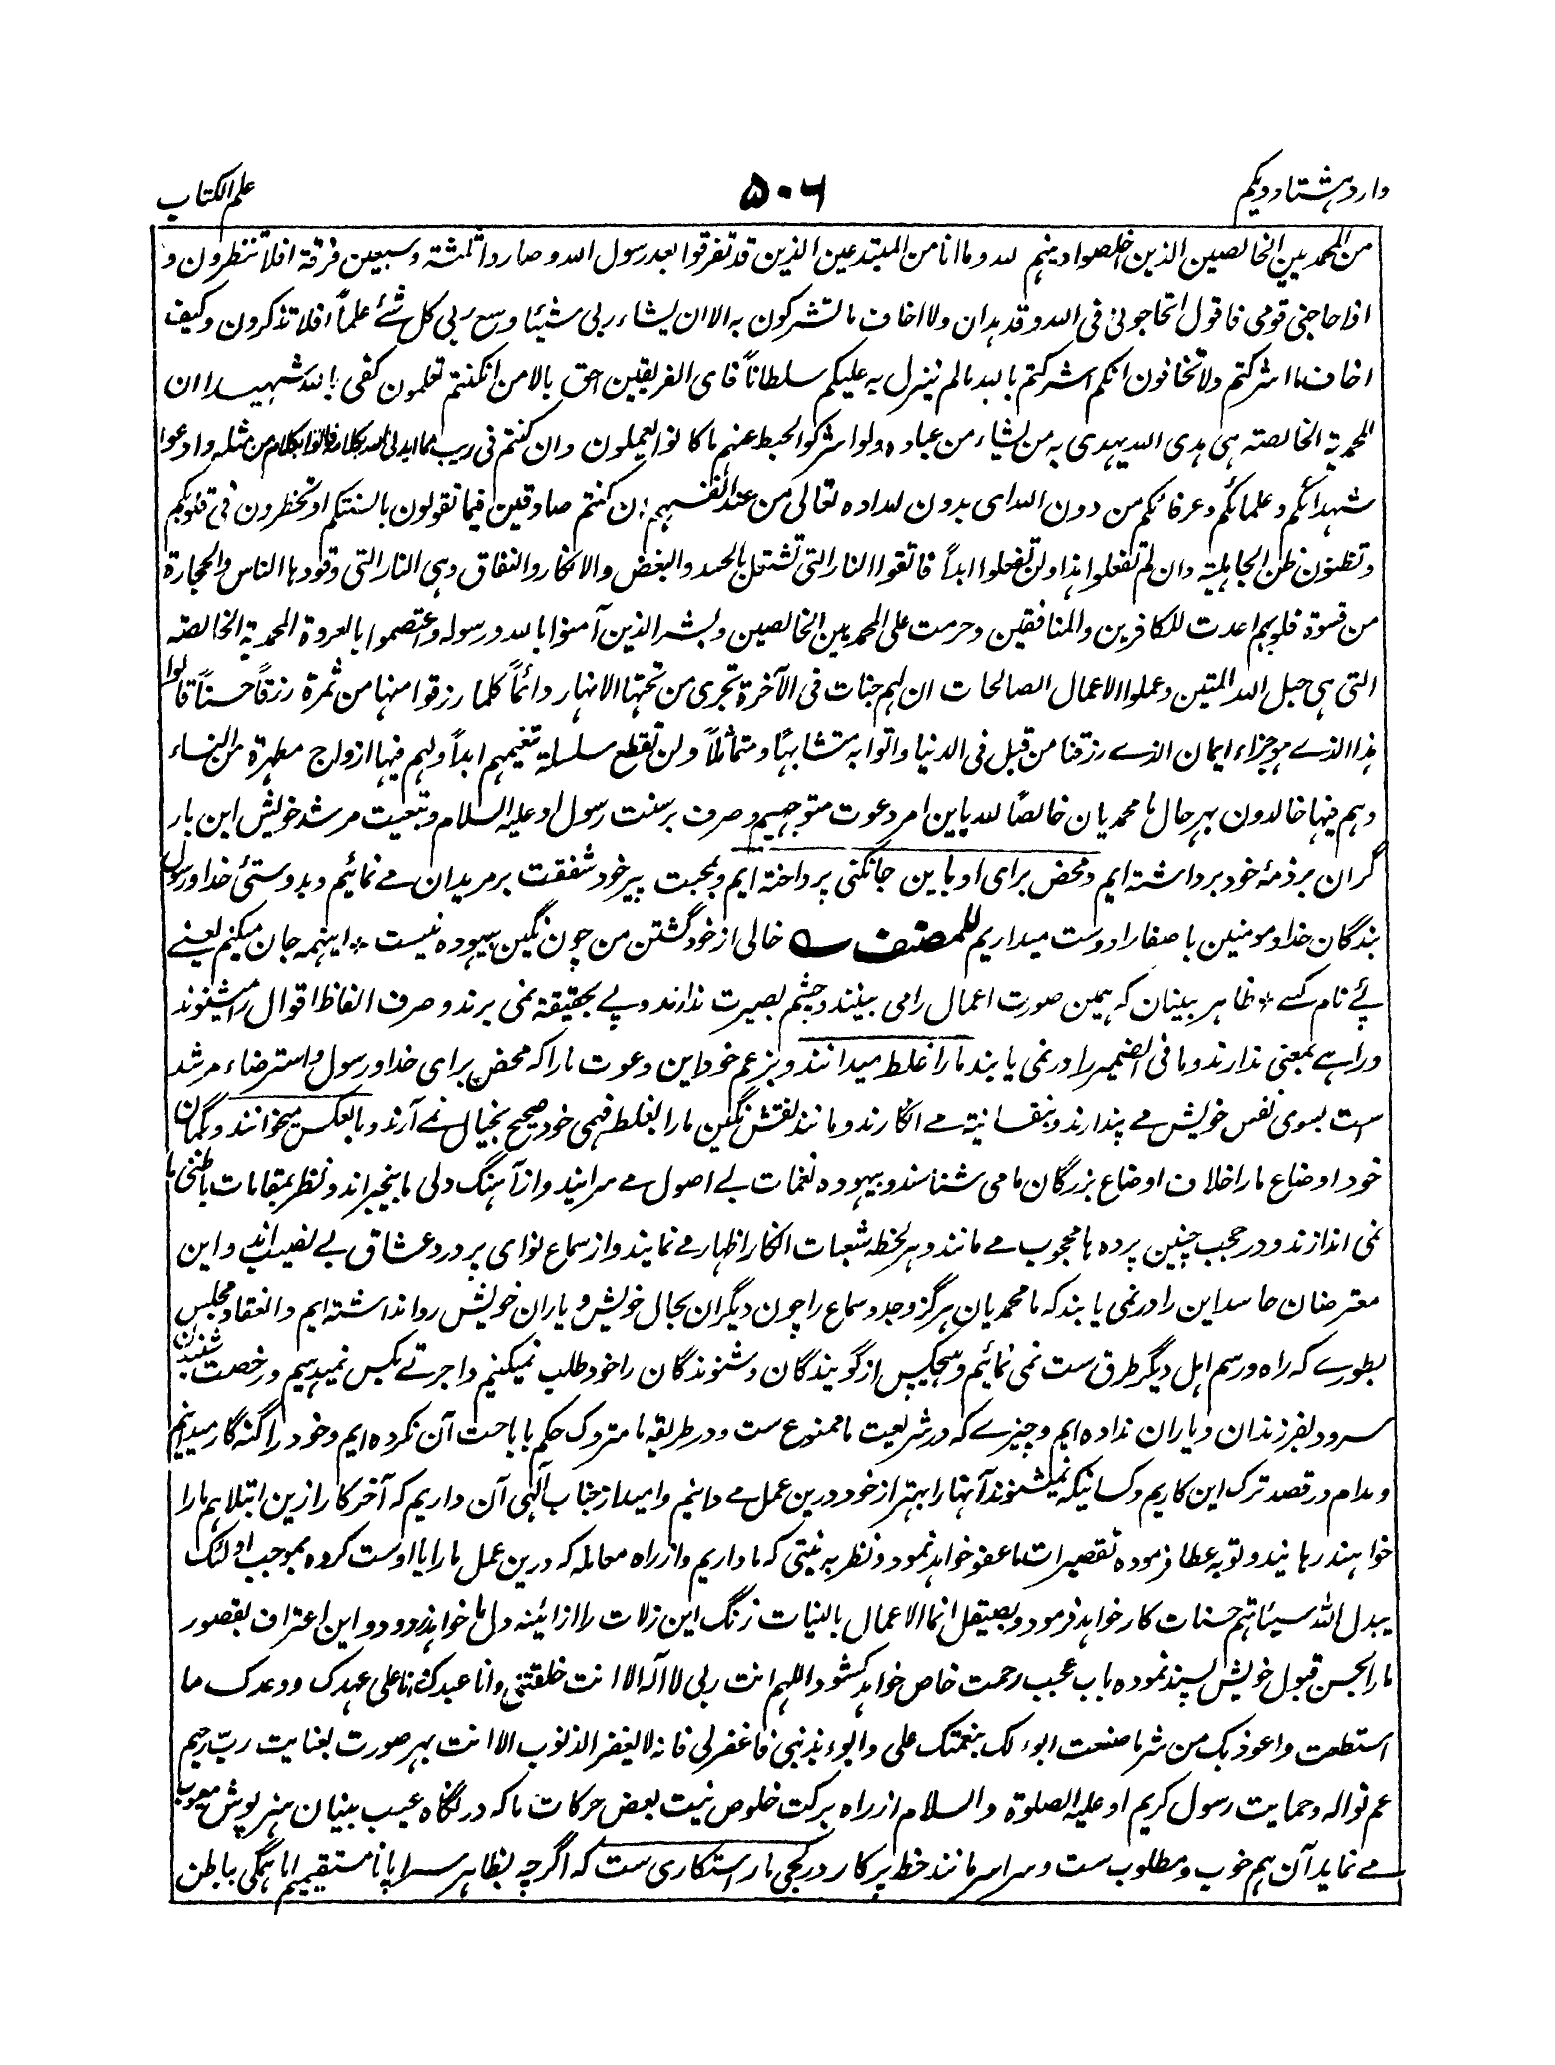 وارد هشتاد و یکم
۵۰۶
علم الکتاب
من المحمدیین الخالصین الذین اخلصوا دینهم لله وما انا من المبتدعین الذین قد تفرقوا بعد رسول الله وصاروا ثلثة وسبعین فرقة افلا تنظرون و
اذا حاجنی قومی فاقول اتحاجونی فی الله وقد هدان ولا اخاف ما تشرکون به الا ان یشاء ربی شیئا وسع ربی کل شئے علماً افلا تذکرون وکیف
اخاف ما اشرکتم ولا تخافون انکم اشرکتم بالله ما لم ینزل به علیکم سلطاناً فای الفریقین احق بالامن ان کنتم تعلمون کفی بالله شهیدا ان
المحمدیة الخالصة هی هدی الله یهدی به من یشاء من عباده ولو اشرکوا لحبط عنهم ما کانوا یعملون وان کنتم فی ریب مما ایدنی الله بکلامه فاتوا بکلام من مثله وادعوا
شهدائکم وعلمائکم وعرفائکم من دون الله ای بدون امداده تعالی من عند انفسهم ان کنتم صادقین فیما تقولون بالسنتکم او تخطرون فی قلوبکم
وتظنون ظن الجاهلیة وان لم تفعلوا هذا ولن تفعلوا ابداً فاتقوا النار التی تشتعل بالحسد والبغض والانکار والنفاق وهی النار التی وقودها الناس والحجارة
من قسوة قلوبهم اعدت للکافرین والمنافقین وحرمت علی المحمدیین الخالصین وبشر الذین آمنوا بالله ورسوله واعتصموا بالعروة المحمدیة الخالصة
التی هی حبل الله المتین وعملوا الاعمال الصالحات ان لهم جنات فی الآخرة تجری من تحتها الانهار دائماً کلما رزقوا منها من ثمرة رزقاً حسناً قالوا
هذا الذے هو جزاء ایمان الذے رزقنا من قبل فی الدنیا واتوا به متشابهاً ومتماثلاً ولن تقطع سلسلة تنعیمهم ابداً ولهم فیها ازواج مطهرة من النساء
وهم فیها خالدون بهرحال ما محمدیان خالصاً لله باین امر دعوت متوجهیم وصرف بر سنت رسول او علیه السلام وتبعیت مرشد خویش این بار
گران بر ذمهٔ خود برداشته ایم ومحض برای او باین جانکنی پرداخته ایم وبمحبت پیر خود شفقت بر مریدان مے نمائیم وبدوستئ خدا ورسول
بندگان خدا ومومنین باصفا را دوست میداریم للمصنف خالی از خود گشتن من چون نگین بیهوده نیست * اینهمه جان میکنم یعنے
پئے نام کسے * ظاهر بینان که همین صورت اعمال را می بینند وچشم بصیرت ندارند وپے بحقیقة نمی برند وصرف الفاظ اقوال را میشنوند
وراهے بمعنی ندارند وما فی الضمیر را در نمی یابند ما را غلط میدانند وبزعم خود این دعوت ما را که محض برای خدا ورسول واسترضاء مرشد
است بسوی نفس خویش مے پندارند ونفسانیة مے انگارند ومانند نقش نگین ما را بغلط فهمی خود صحیح بخیال نمے آرند وبالعکس میخوانند وبگمان
خود اوضاع ما را خلاف اوضاع بزرگان ما می شناسند وبیهوده نغمات بے اصول مے سرایند واز آهنگ دلی ما بیخبراند ونظر بمقامات باطنی ما
نمی اندازند ودر حجب چنین پرده ها محجوب مے مانند وهر لحظه شعبات انکار اظهار مے نمایند واز سماع نوای پر درد عشاق بے نصیب اند واین
معترضان حاسد این را در نمی یابند که ما محمدیان هرگز وجد وسماع را چون دیگران بحال خویش ویاران خویش روا نداشته ایم وانعقاد مجلس
بطورے که راه ورسم اهل دیگر طرق ست نمی نمائیم وهیچکس از گویندگان وشنوندگان را خود طلب نمیکنیم واجرتے بکس نمیدهیم ورخصت شنیدن
سرود بفرزندان ویاران نداده ایم وچیزے که در شریعت ما ممنوع ست ودر طریقه ما متروک حکم باباحت آن نکرده ایم وخود را گنهگار میدانیم
ومدام در قصد ترک این کاریم وکسانیکه نمیشنوند آنها را بهتر از خود درین عمل مے دانیم وامید از جناب الٰهی آن داریم که آخر کار ازین ابتلا هم ما را
خواهند رهانید وتوبه عطا فرموده تقصیرات ما عفو خواهد نمود ونظر به نیتی که ما داریم واز راه معامله که درین عمل ما را با اوست کرده بموجب اولئک
یبدل الله سیئاتهم حسنات کار خواهد فرمود وبصیقل انما الاعمال بالنیات زنگ این زلات را از ائینه دل ما خواهد زدود واین اعتراف بقصور
ما را بحسن قبول خویش پسند نموده باب عجب رحمت خاص خواهد کشود اللهم انت ربی لا اله الا انت خلقتنی وانا عبدک وانا علی عهدک ووعدک ما
استطعت واعوذ بک من شر ما صنعت ابوء لک بنعمتک علی وابوء بذنبی فاغفر لی فانه لا یغفر الذنوب الا انت بهر صورت بعنایت ربّ رحیم
عم نواله وحمایت رسول کریم او علیه الصلوة والسلام از راه برکت خلوص نیت بعض حرکات ما که در نگاه عیب بینان هنر پوش معیوب
مے نماید آن هم خوب ومطلوب ست وسراسر مانند خط پرکار در کجی ما راستکاری ست که اگرچه بظاهر سراپا نامستقیمیم اما همگی بباطن